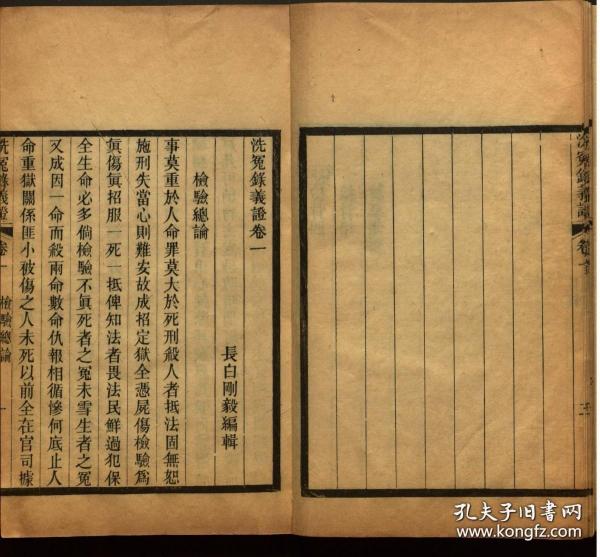 洗冤錄義證
卷
洗冤錄義證卷一
長白剛毅編輯
檢驗總論
事莫重於人命罪莫大於死刑殺人者抵法固無恕
施刑失當心則難安故成招定獄全憑屍傷檢驗爲
眞傷眞招服一死一抵俾知法者畏法民鮮過犯保
全生命必多倘檢驗不眞死者之冤未雪生者之冤
又成因一命而殺兩命數命仇報相循慘何底止人
命重獄關係匪小被傷之人未死以前全在官司據
洗冤錄義證
卷一
檢驗總論
一
孔夫子旧书网
www.kongfz.com